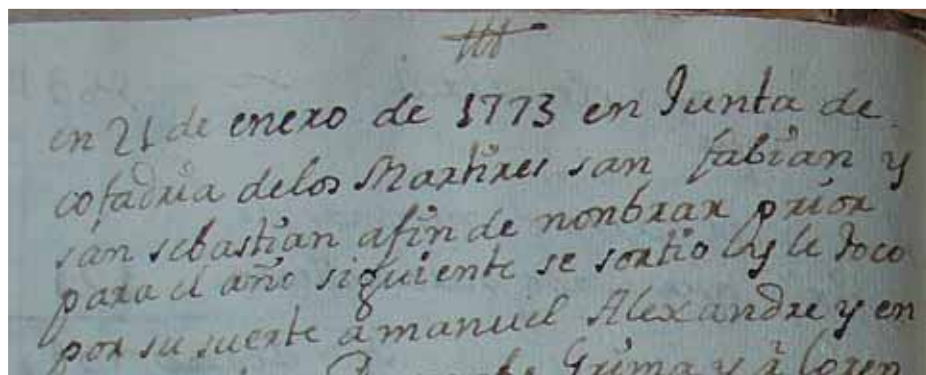 en 21 de enero de 1773 en Junta de
cofadria delos Martires san fabian y
san sebastian afin de nonbrar prior
para el año siguiente se sortio y le toco
por su suerte a manuel Alexandre y en
Grima y à Loren